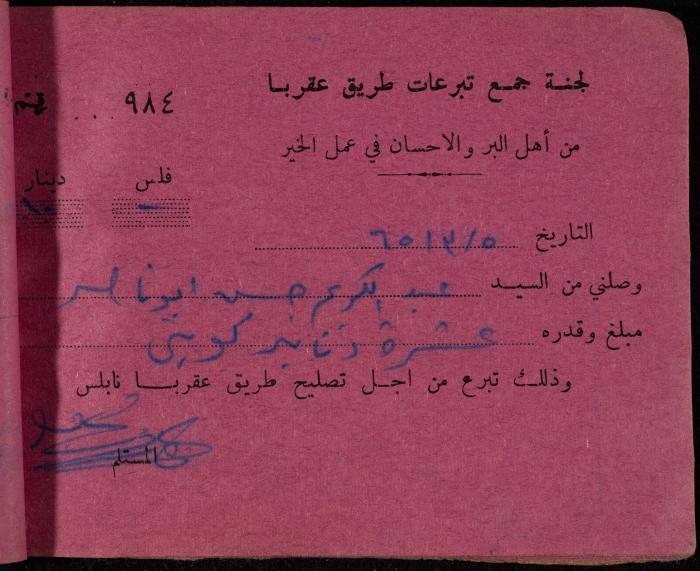 لجنة جمع تبرعات طريق عقربا
٩٨٤ . . .
من أهل البر والاحسان في عمل الخير
فلس دينار
- ١٠
التاريخ ٦٥/٣/٥
وصلني من السيد عبد الكريم حسن ابو ناصر
مبلغ وقدره عشرة دنانير كويتي
وذلك تبرع من اجل تصليح طريق عقربا نابلس
المستلم